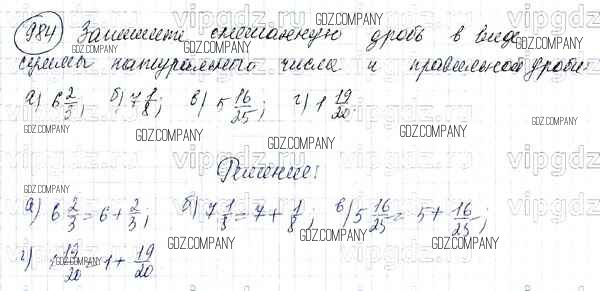 984 Запишите смешанную дробь в виде
суммы натурального числа и правильной дроби:
а) 6 2/3; б) 7 1/8; в) 5 16/25; г) 1 19/20.
Решение:
а) 6 2/3 = 6 + 2/3; б) 7 1/8 = 7 + 1/8; в) 5 16/25 = 5 + 16/25;
г) 1 19/20 = 1 + 19/20